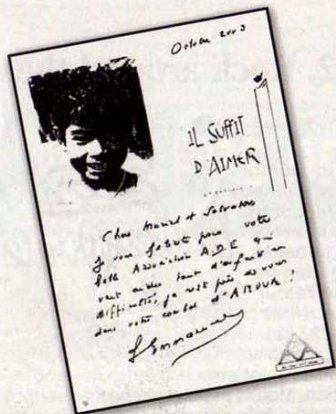 Octobre 2003
IL SUFFIT
D'AIMER
Chers Muriel et Salvatore
je vous félicite pour votre
belle Association A.D.E qui
veut aider tant d'enfants en
difficultés, je suis près de vous
dans votre combat d'AMOUR !
Emmanuelle